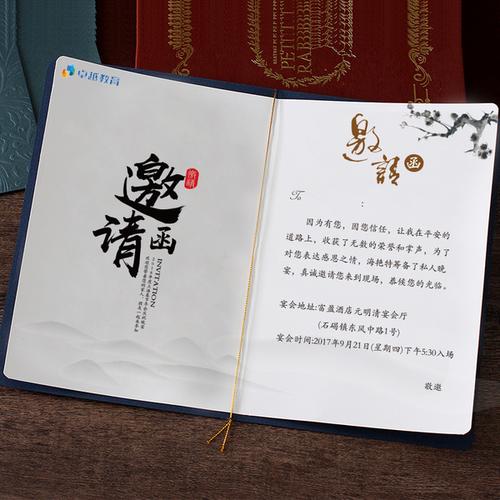 PETIT
卓越教育
邀请函
INVITATION
邀請函
To :
因为有您，因您信任，让我在平安的
道路上，收获了无数的荣誉和掌声，为了
对您表达感恩之情，海艳特筹备了私人晚
宴，真诚邀请您来到现场，恭候您的光临。
宴会地址:富盈酒店元明清宴会厅
(石碣镇东风中路1号)
宴会时间:2017年9月21日(星期四)下午5:30入场
敬邀